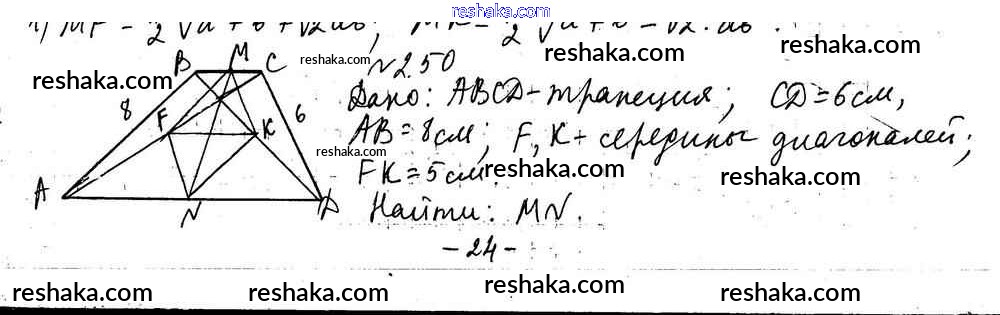 www.reshaka.com
N250
B M C
reshaka.com
reshaka.com
reshaka.com
Дано: ABCD - трапеция; CD = 6 см,
8
F
K
6
AB = 8 см; F, K - середины диагоналей;
reshaka.com
reshaka.com
reshaka.com
FK = 5 см.
A
N
D
Найти: MN.
reshaka.com
reshaka.com
- 24 -
reshaka.com
reshaka.com
reshaka.com
reshaka.com